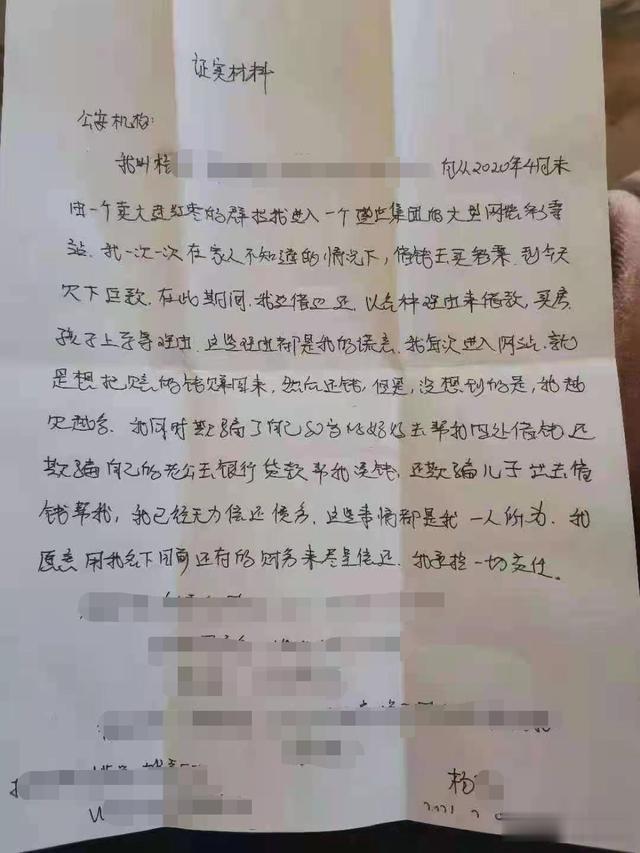 证实材料
公安机构:
我叫杨 自从2020年4月末
由一个卖大枣红枣的群拉我进入一个盛世集团的大型网络彩票
站.我一次一次在家人不知道的情况下,借钱去买彩票.到今天
欠下巨款.在此期间.我边借边还.以各种理由来借款,买房.
孩子上学等理由.这些理由都是我的谎言.我每次进入网站.就
是想把输的钱赢回来,然后还钱,但是,没想到的是,我越
欠越多.我同时欺骗了自己80岁的妈妈去帮我四处借钱,还
欺骗自己的老公去银行贷款帮我还钱,还欺骗儿子出去借
钱帮我,我已经无力偿还债务.这些事情都是我一人所为.我
愿意用我名下目前还有的财务来尽量偿还.我承担一切责任。
杨
2021.2